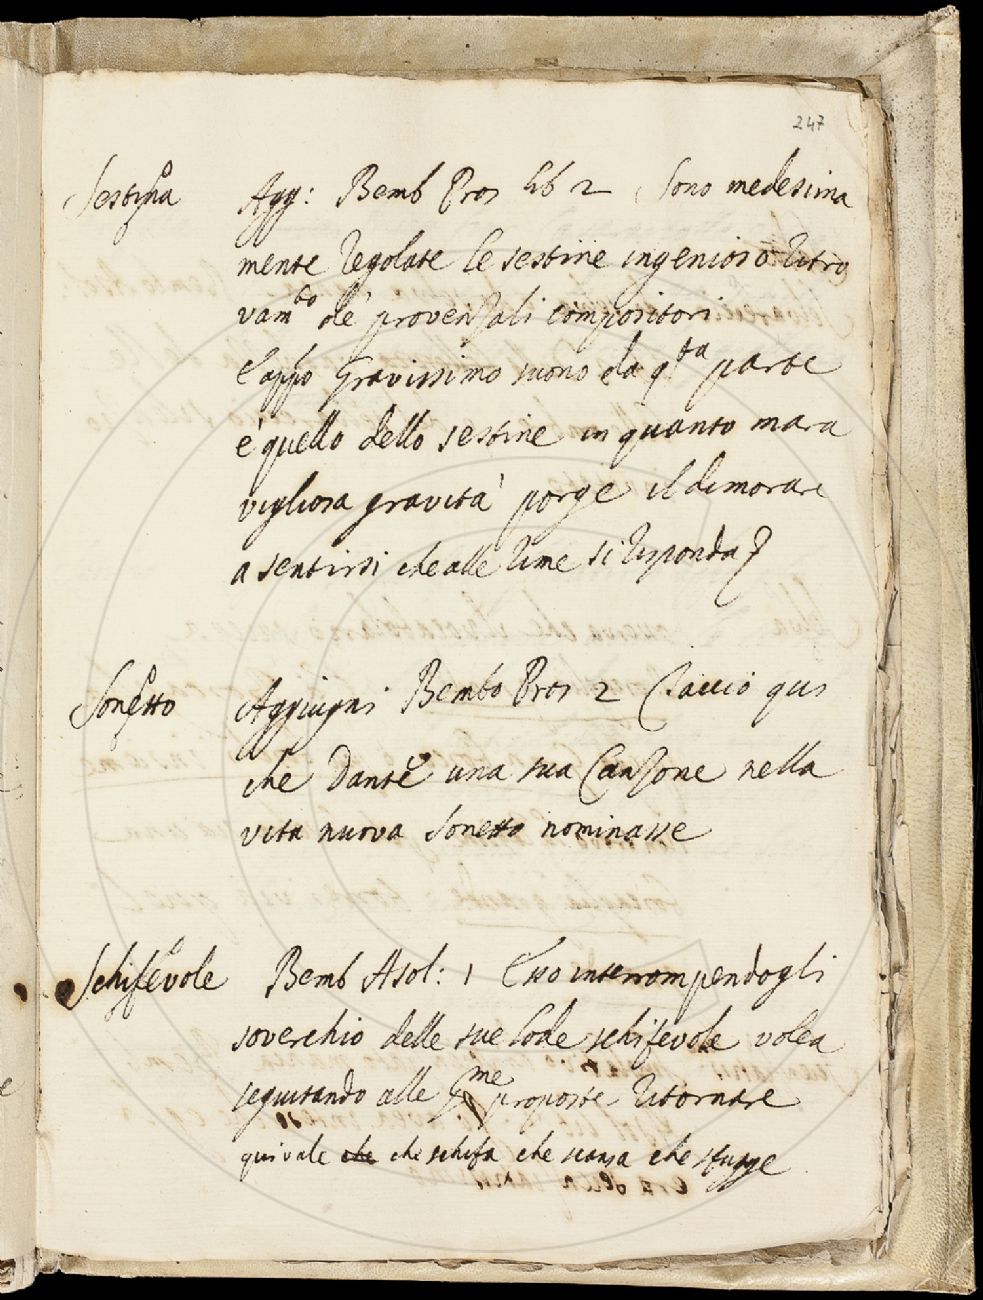 247
Sestina Agg: Bemb Pros lib 2 Sono medesima
mente regolate le sestine ingenioso ritro
vam.to de provenzali compositori
E appo Gravissimo suono da q.ta parte
è quello dello sestine in quanto mara
vigliosa gravità porge il dimorare
a sentirsi che alle rime si risponda
Sonetto Aggiugni Bembo Pros 2 Taccio qui
che Dante una sua Canzone nella
vita nuova Sonetto nominasse
Schifevole Bemb Asol: 1 Esso interrompendogli
soverchio delle sue lode schifevole volea
seguitando alle p.me proposte ritornare
qui vale che che schifa che scansa che sfugge